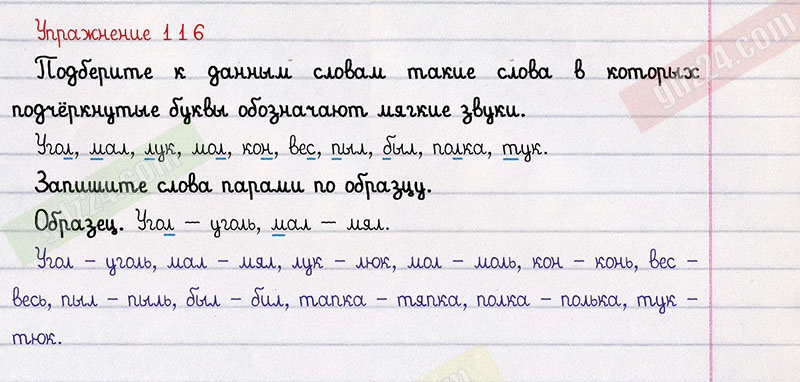 Упражнение 116
Подберите к данным словам такие слова в которых
подчёркнутые буквы обозначают мягкие звуки.
Угол, мал, лук, мол, кон, вес, пыл, был, полка, тук.
Запишите слова парами по образцу.
Образец. Угол – уголь, мал – мял.
Угол – уголь, мал – мял, лук – люк, мол – моль, кон – конь, вес –
весь, пыл – пыль, был – бил, тапка – тяпка, полка – полька, тук –
тюк.
gdz24.com
gdz24.com